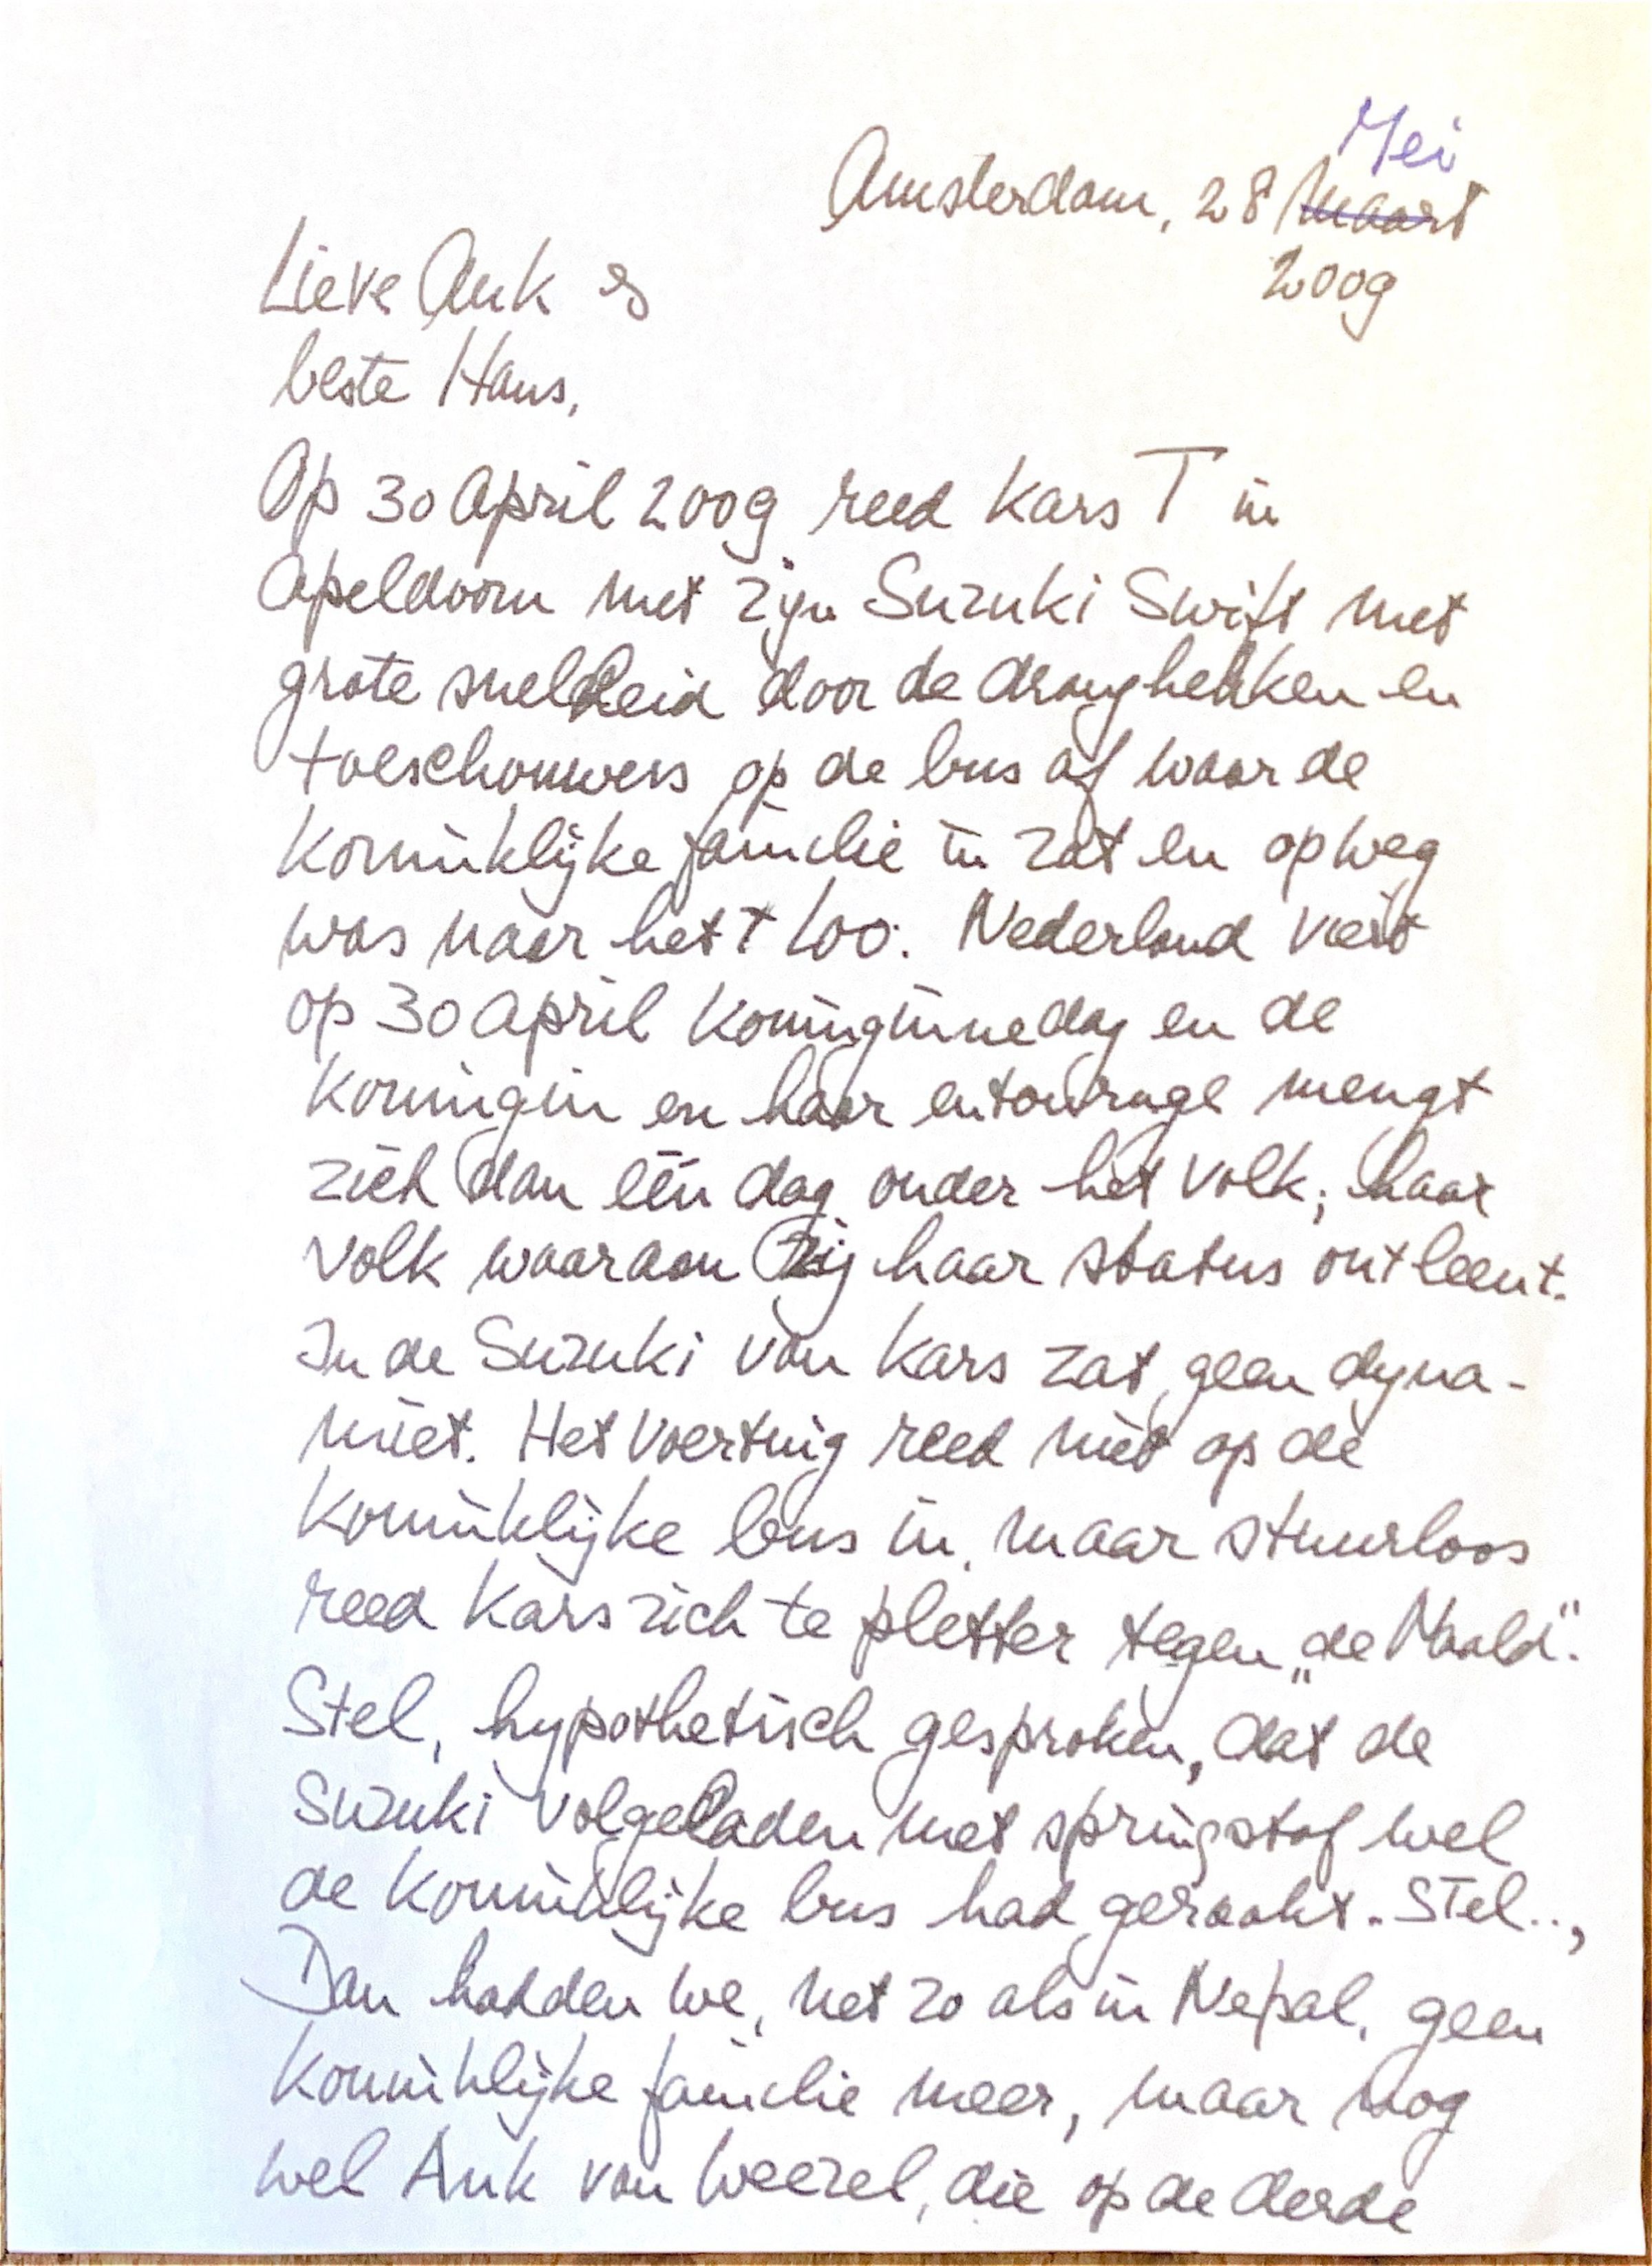 Mei
Amsterdam, 28 maart
2009
Lieve Ank &
beste Hans,
Op 30 April 2009 reed Kars T in
Apeldoorn met zijn Suzuki Swift met
grote snelheid door de dranghekken en
toeschouwers op de bus af waar de
Koninklijke familie in zat en op weg
was naar het t Loo. Nederland viert
op 30 April Koninginnedag en de
Koningin en haar entourage mengt
zich dan één dag onder het volk; haar
volk waaraan zij haar status ontleent.
In de Suzuki van Kars zat geen dyna-
miet. Het voertuig reed niet op de
Koninklijke bus in, maar stuurloos
reed Kars zich te pletter tegen „de Naald".
Stel, hypothetisch gesproken, dat de
Suzuki volgeladen met springstof wel
de Koninklijke bus had geraakt. Stel..,
Dan hadden we, net zo als in Nepal, geen
Koninklijke familie meer, maar nog
wel Ank van Weezel, die op de derde